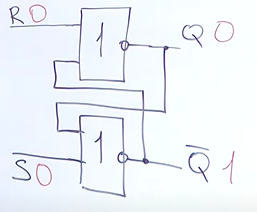 R0
1
Q 0
1
S0
Q̅ 1